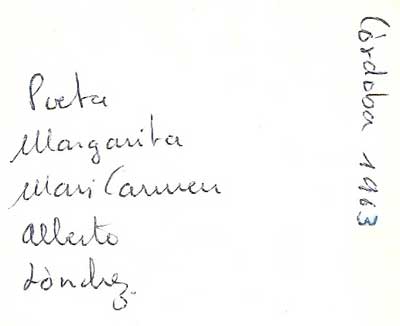 Poeta
Margarita
Mari Carmen
Alberto
Sònchez
Còrdoba 1963